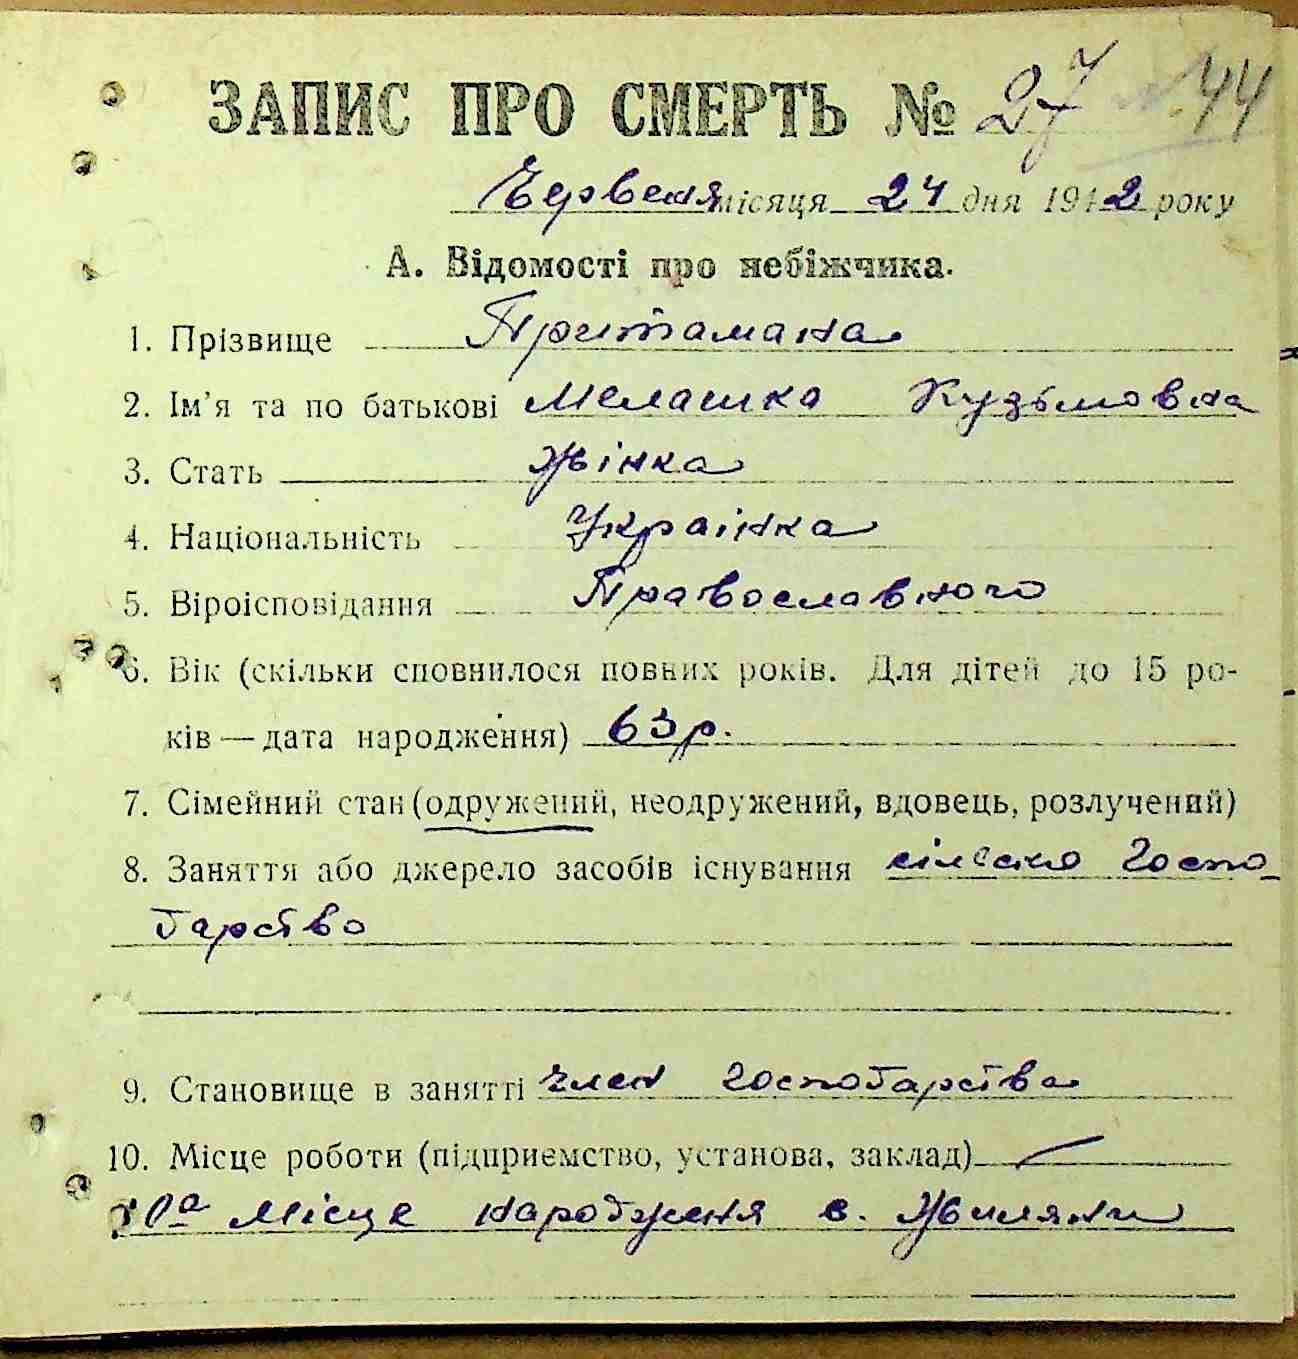 ЗАПИС ПРО СМЕРТЬ № 27 № 44
Червеня місяця 24 дня 1942 року
А. Відомості про небіжчика.
1. Прізвище Притамана
2. Ім'я та по батькові Мелашка Кузьмовна
3. Стать жінка
4. Національність Українка
5. Віроісповідання Православного
6. Вік (скільки сповнилося повних років. Для дітей до 15 ро-
ків — дата народження) 63 р.
7. Сімейний стан (одружений, неодружений, вдовець, розлучений)
8. Заняття або джерело засобів існування сільсько госпо-
дарство
9. Становище в занятті член господарства
10. Місце роботи (підприємство, установа, заклад) —
10а Місце народженя с. Жиляни